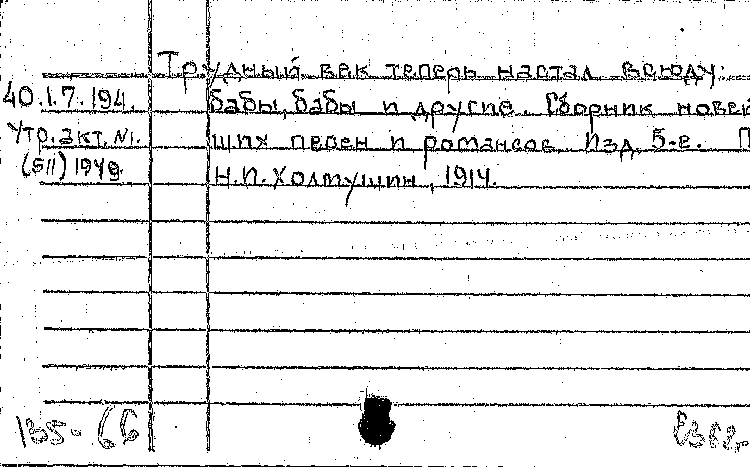 Трудный век теперь настал всюду:
40.1.7.194. бабы, бабы и другие. Сборник новей
Утр. акт. №1. ших песен и романсов. Изд. 5-е. П
(511) 1949. Н.И. Холмушин, 1914.
135-66